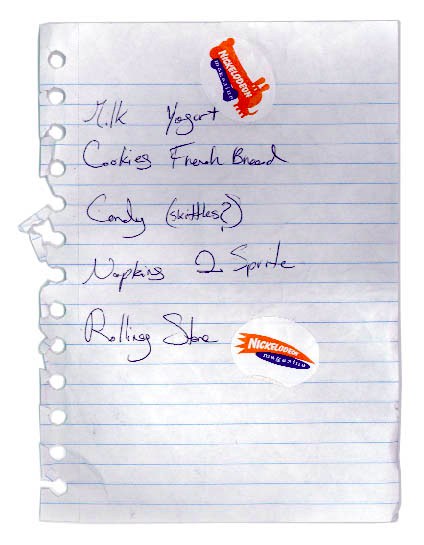 NICKELODEON
magazine
Milk Yogurt
Cookies French Bread
Candy (skittles?)
Napkins 2 Sprite
Rolling Stone
NICKELODEON
magazine